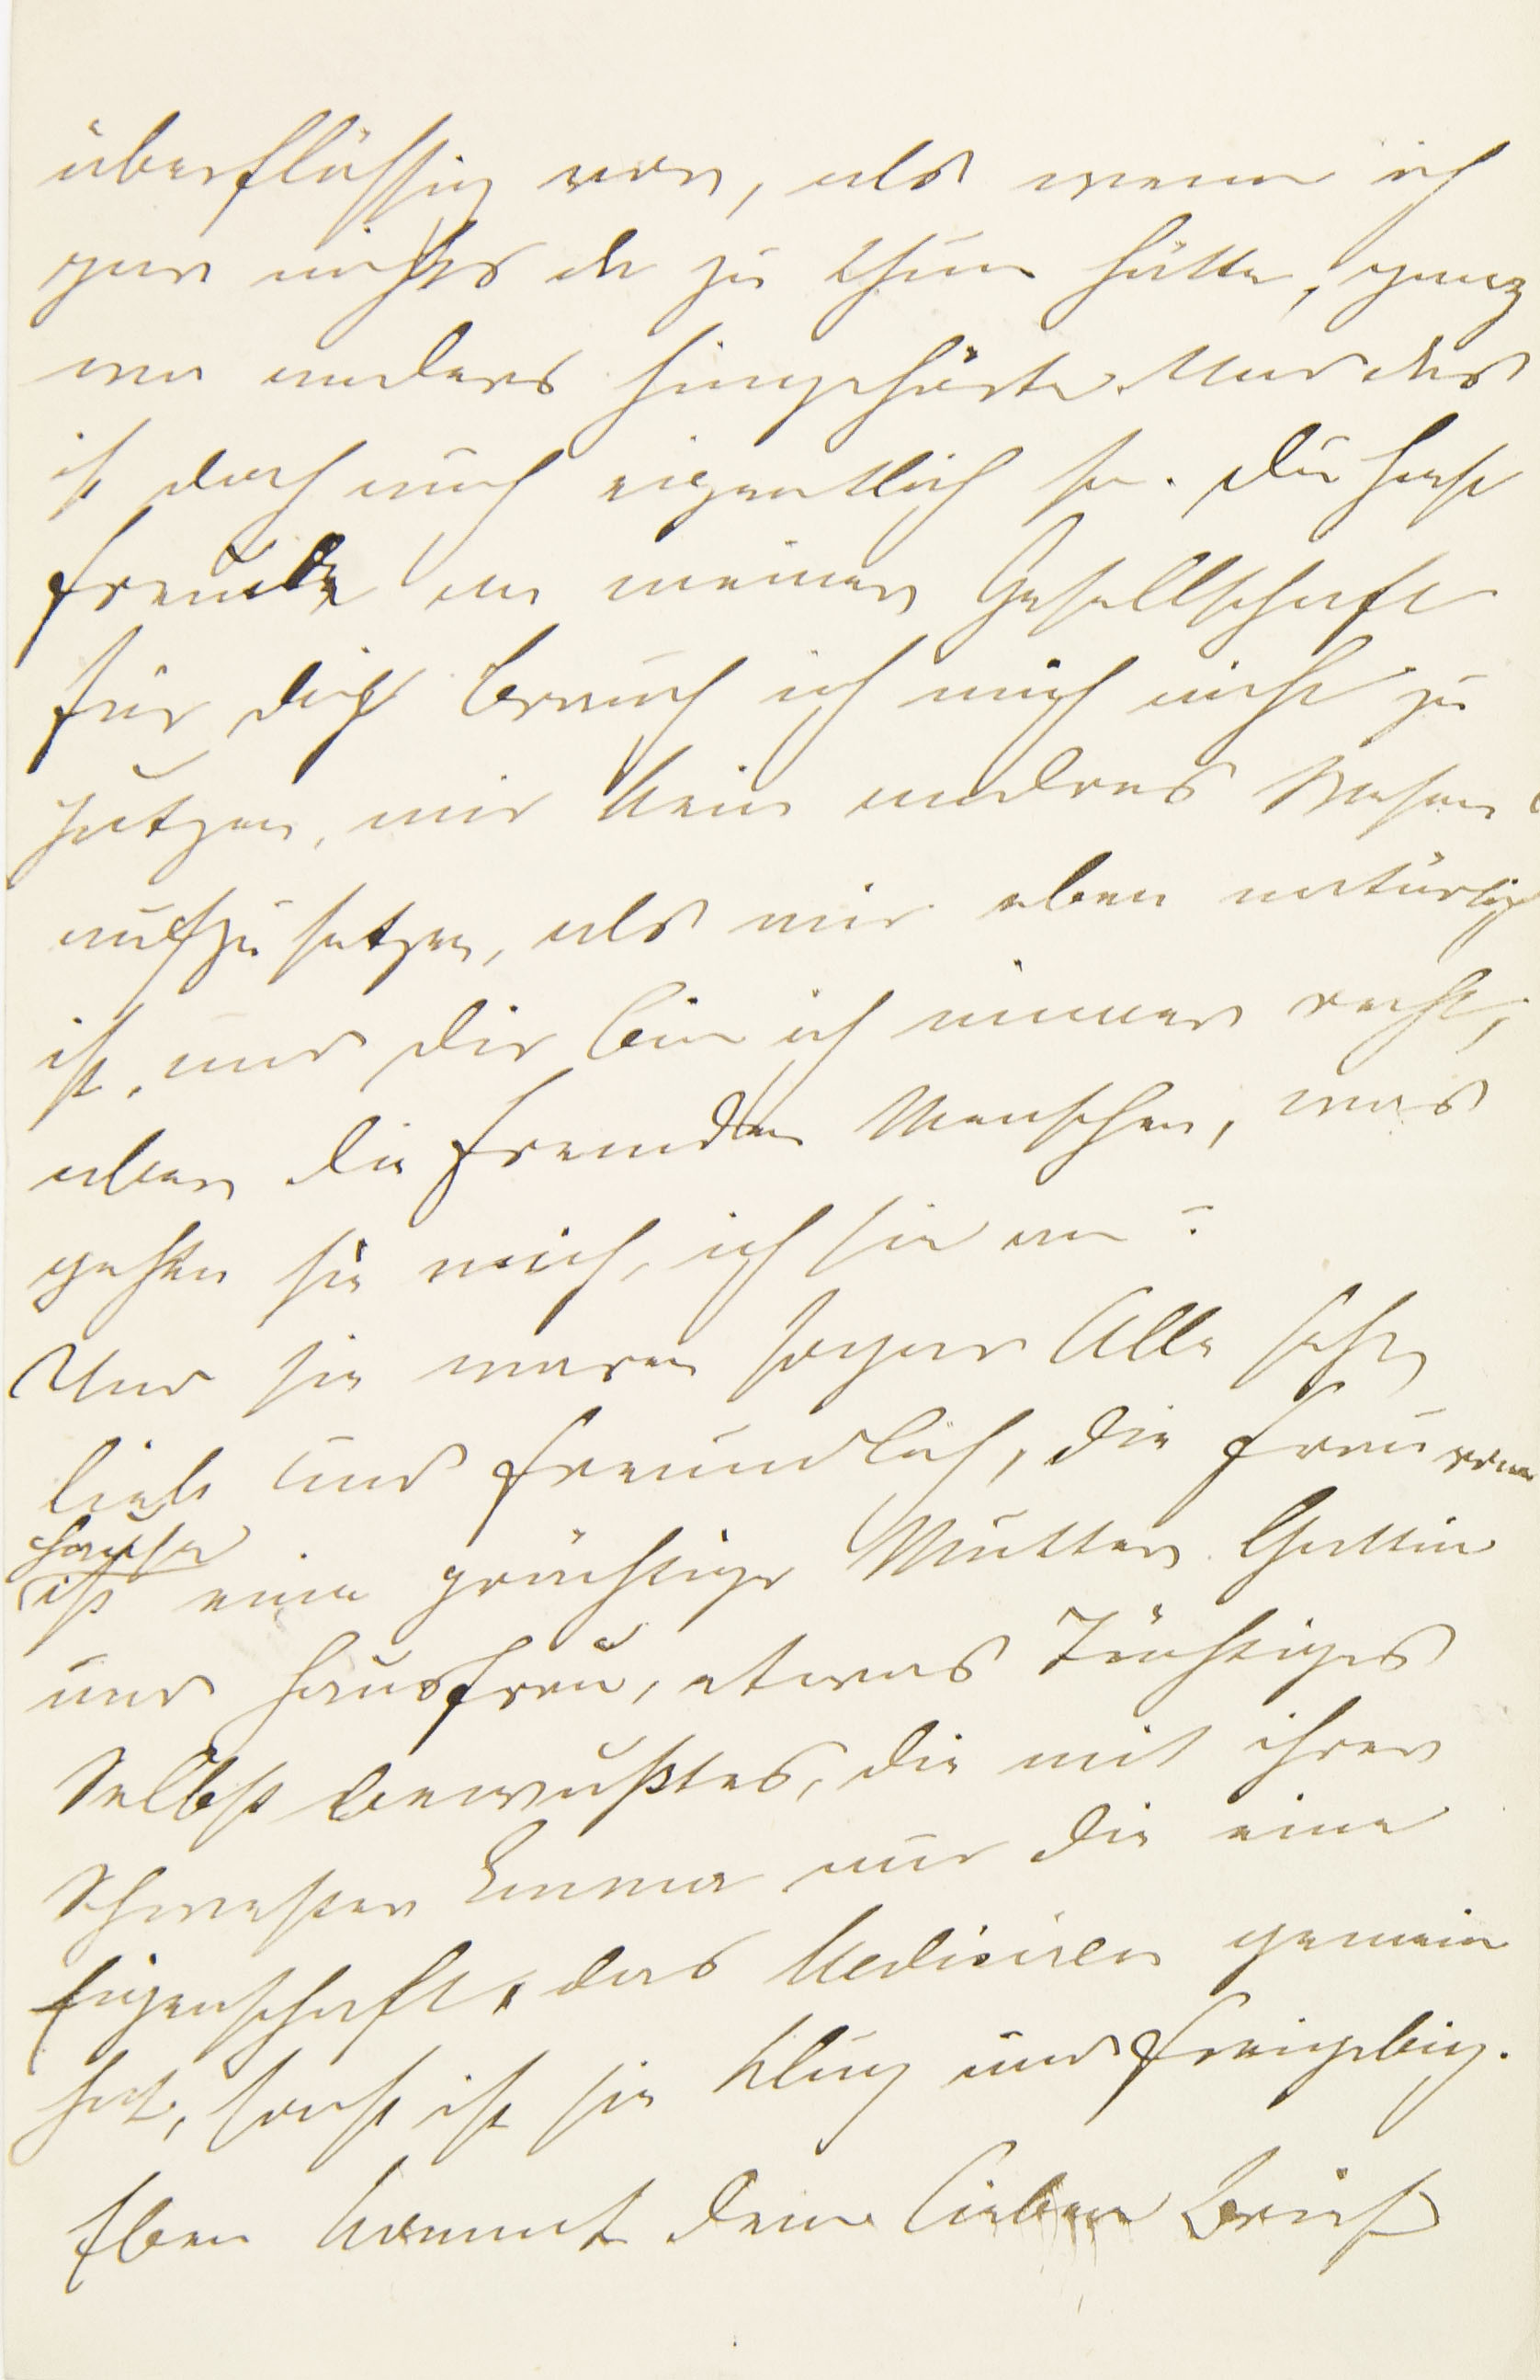 überflüssig vor, als wenn ich
gar nichts da zu thun hätte, ganz
wo anders hingehörte. Und das
ist doch auch eigentlich so. Du hast
Freude an meiner Gesellschaft
für dich brauch ich mich nicht zu
putzen, mir kein andres Wesen
aufzusetzen, als mir eben natürlich
ist, und dir bin ich immer recht,
aber die fremden Menschen, was
gehen sie mich, ich sie an?
Und sie waren sogar Alle sehr
lieb und freundlich, die Frau vom
Hause
ist eine prächtige Mutter Gattin
und Hausfrau, etwas Tüchtiges
Selbst bewußtes, die mit ihrer
Schwester Emma nur die eine
Eigenschaft, das Mediciren gemein
hat, sonst ist sie klug und freigebig.
Eben kommt dein lieber Brief